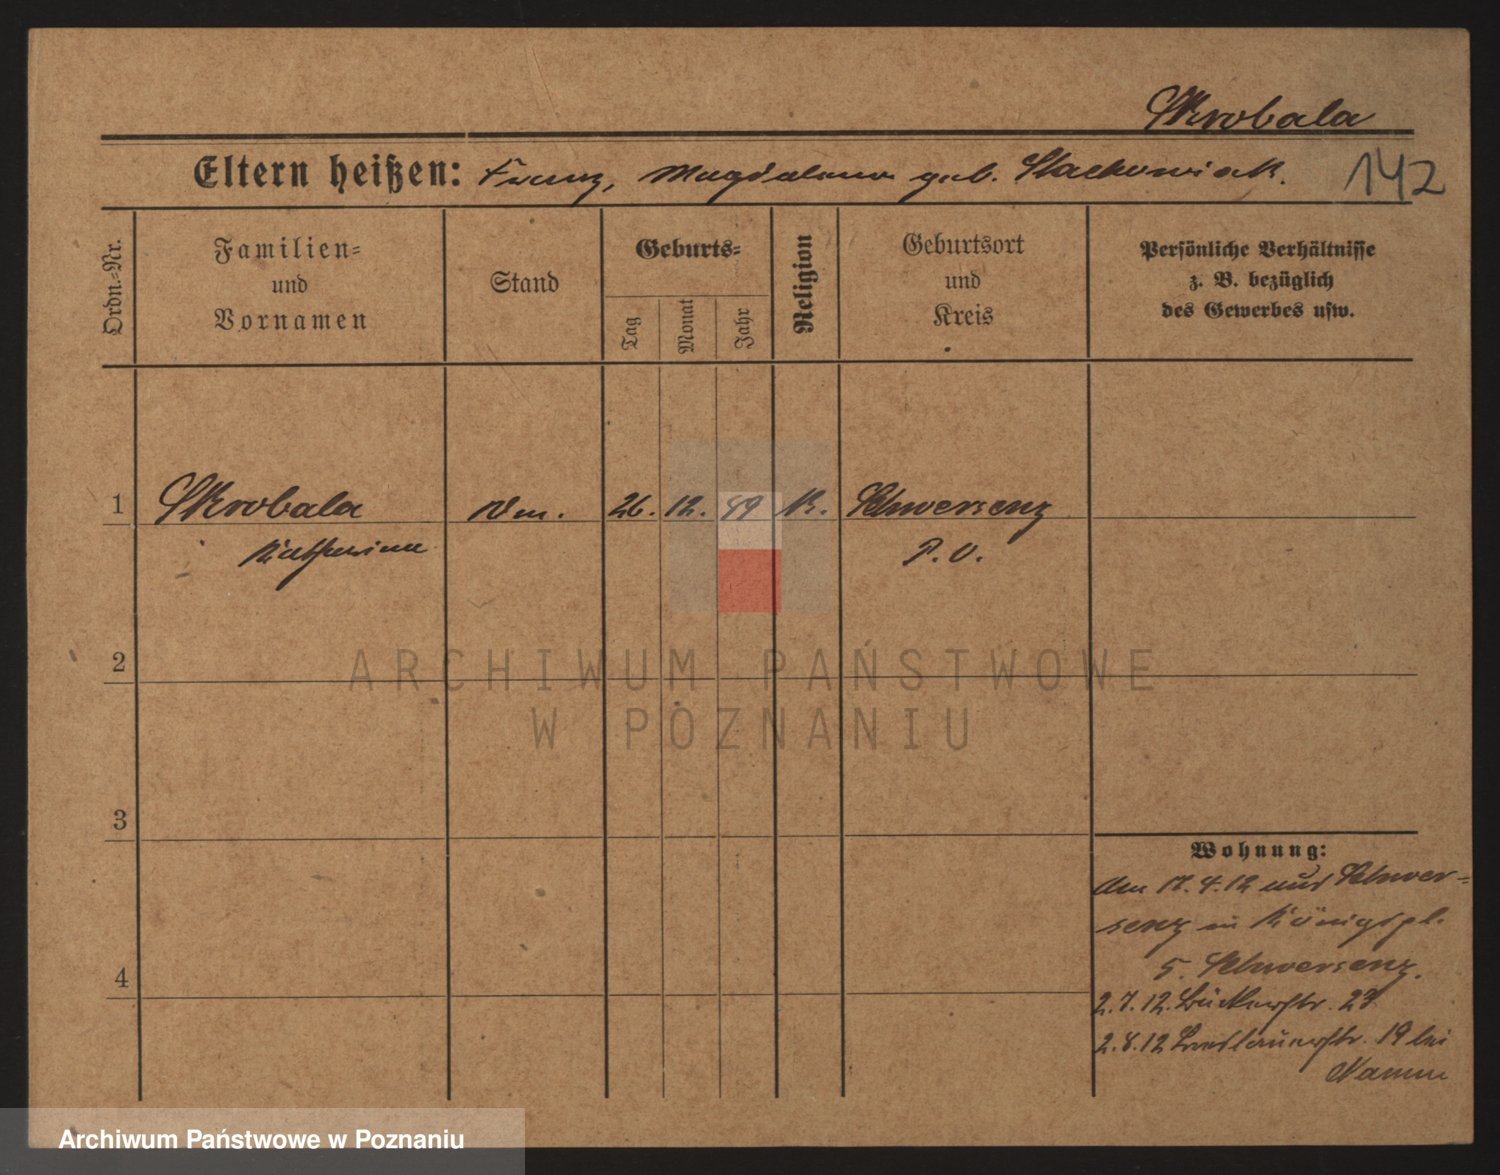 Skrobala
Eltern heißen: Franz, Magdalena geb. Stachowiak.
142
Ordn.-Nr.
Familien-
und
Vornamen
Stand
Geburts-
Tag
Monat
Jahr
Religion
Geburtsort
und
Kreis
Persönliche Verhältnisse
z. B. bezüglich
des Gewerbes usw.
1 Skrobala 26. 12. 49 K. Schwersenz
Katharina P. O.
2
3
4
Wohnung:
Am 17.4.12 aus Schwer-
senz in Königspl.
5. Schwersenz.
2.7.12. Bäckerstr. 23
2.8.12 Breslauerstr. 19 bei
ARCHIWUM PAŃSTWOWE
W POZNANIU
Archiwum Państwowe w Poznaniu